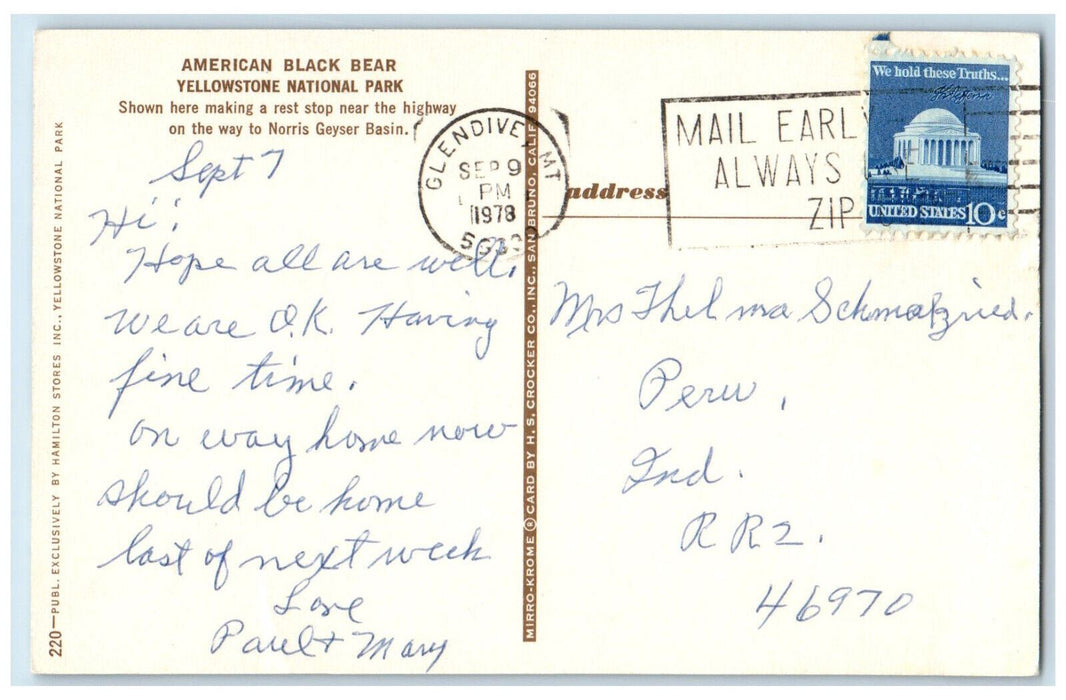 AMERICAN BLACK BEAR
YELLOWSTONE NATIONAL PARK
Shown here making a rest stop near the highway
on the way to Norris Geyser Basin.
Sept 7
Hi!
Hope all are well.
We are O.K. Having
fine time.
on way home now
should be home
last of next week
Love
Paul & Mary
220—PUBL. EXCLUSIVELY BY HAMILTON STORES INC., YELLOWSTONE NATIONAL PARK
MIRRO-KROME ® CARD BY H. S. CROCKER CO., INC., SAN BRUNO, CALIF. 94066
GLENDIVE, MT
SEP 9
PM
1978
address
MAIL EARLY
ALWAYS
ZIP
We hold these Truths...
UNITED STATES 10c
Mrs Thelma Schmalzried.
Peru,
Ind.
RR2.
46970